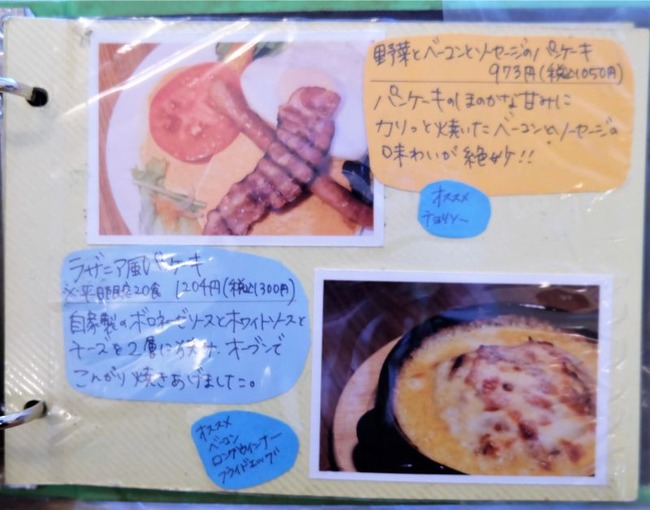 野菜とベーコンとソーセージのパンケーキ
973円(税込1050円)
パンケーキのほのかな甘みに
カリっと焼いたベーコンとソーセージの
味わいが絶妙!!
オススメ
チョリソー
ラザニア風パンケーキ
※平日限定20食 1204円(税込1300円)
自家製のボロネーゼソースとホワイトソースと
チーズを2層に分け、オーブンで
こんがり焼きあげました。
オススメ
ベーコン
ロングウインナー
フライドエッグ